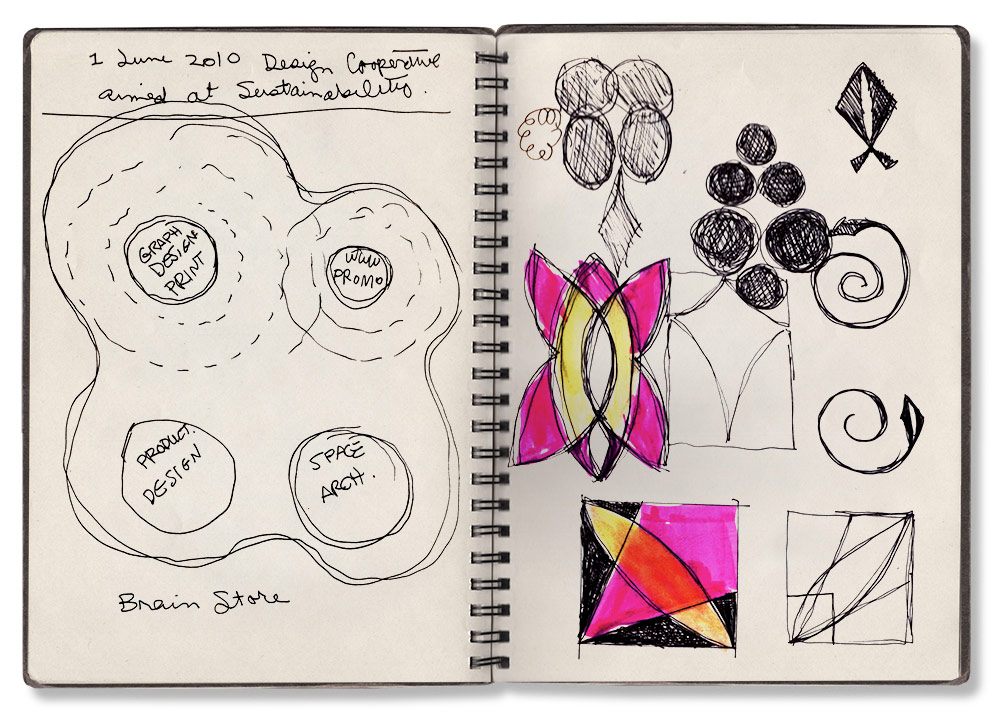 1 June 2010 Design Cooperative
aimed at Sustainability.
GRAPH
DESIGN
PRINT
WWW
PROMO
PRODUCT.
DESIGN
SPACE
ARCH.
Brain Store